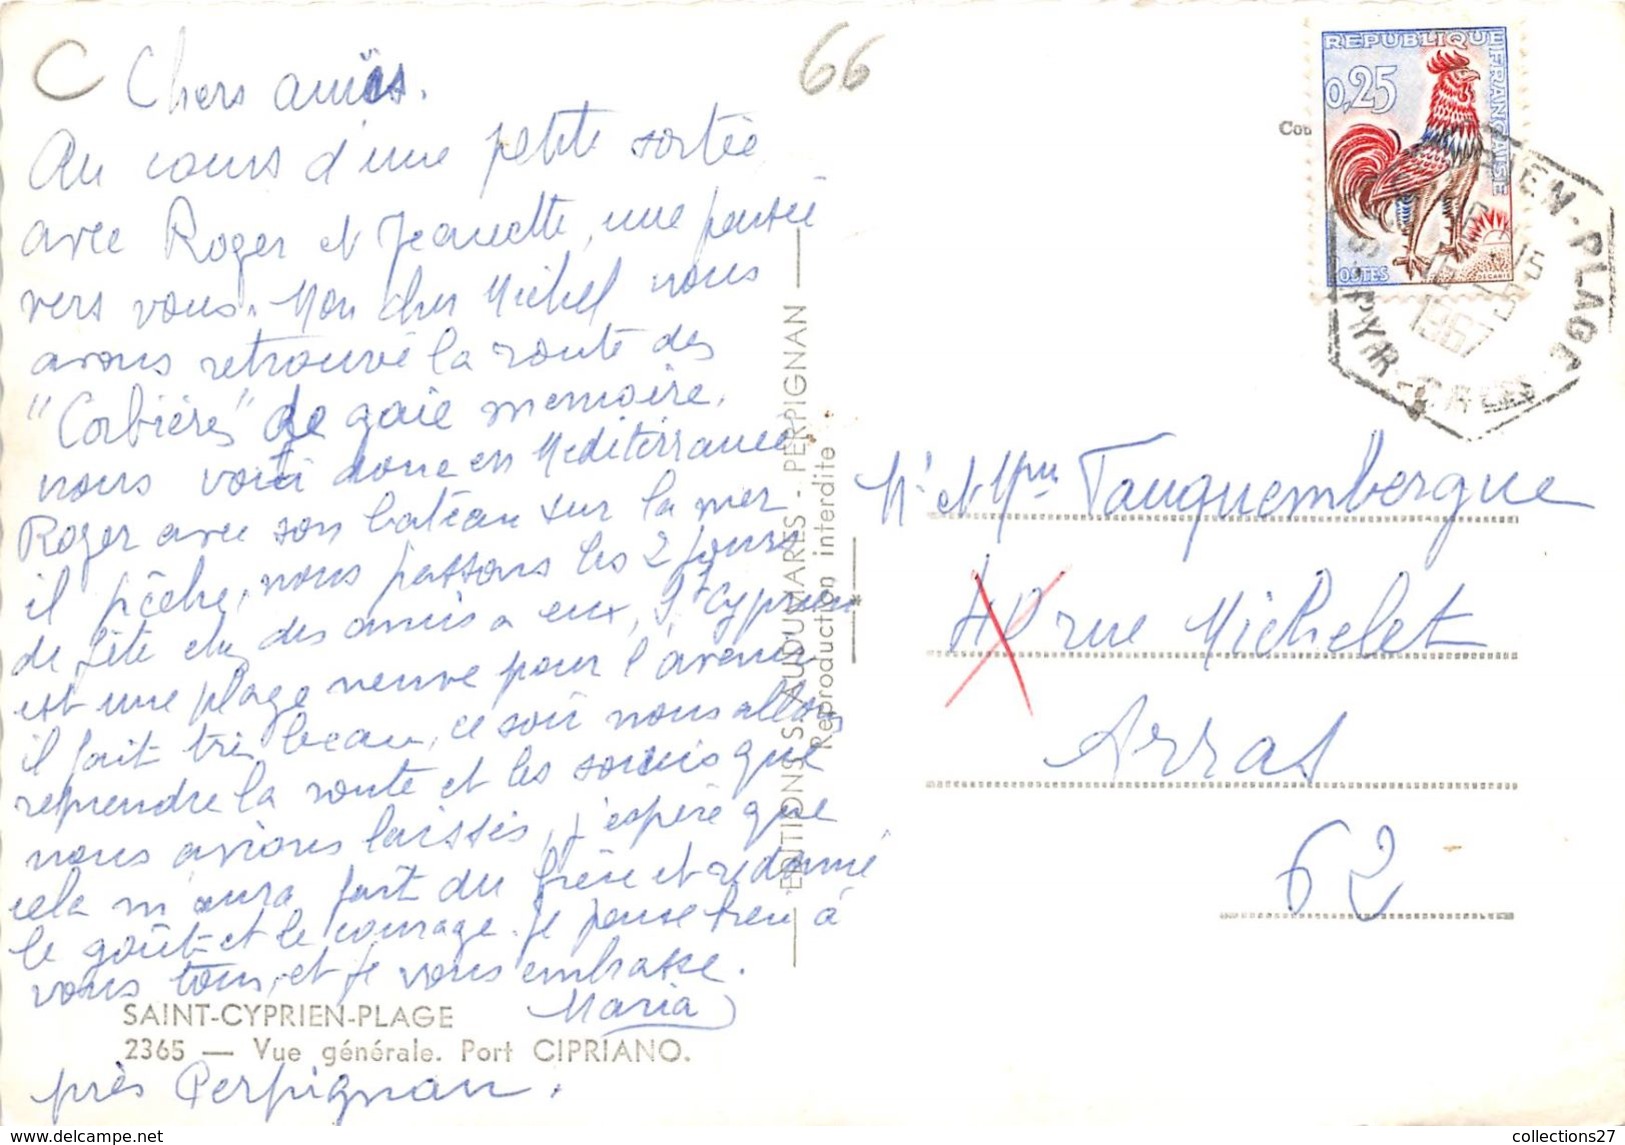 C
66
Chers amis.
Au cours d'une petite sortie
avec Roger et Jeannette, une pensée
vers vous. Mon cher Michel nous
avons retrouvé la route des
"Corbières" de gaie memoire,
nous voici donc en Mediterranée
Roger avec son bateau sur la mer
il pêche, nous passons les 2 jours
de fête chez des amis a eux, St Cyprien
est une plage neuve pour l'avenir
il fait très beau, ce soir nous allons
reprendre la route et les soucis que
nous avions laissés, j'espère que
cela m'aura fait du bien et redonné
le goût et le courage. Je pense bien à
vous tous, et je vous embrasse.
Maria
SAINT-CYPRIEN-PLAGE
2365 — Vue générale. Port CIPRIANO.
près Perpignan.
EDITIONS S. AUDUMARES - PERPIGNAN
Reproduction interdite
REPUBLIQUE FRANÇAISE
0,25
POSTES
DECARIS
1967
PYR.-
Mr et Mme Tauquembergue
40 rue Michelet
Arras
62
collections27